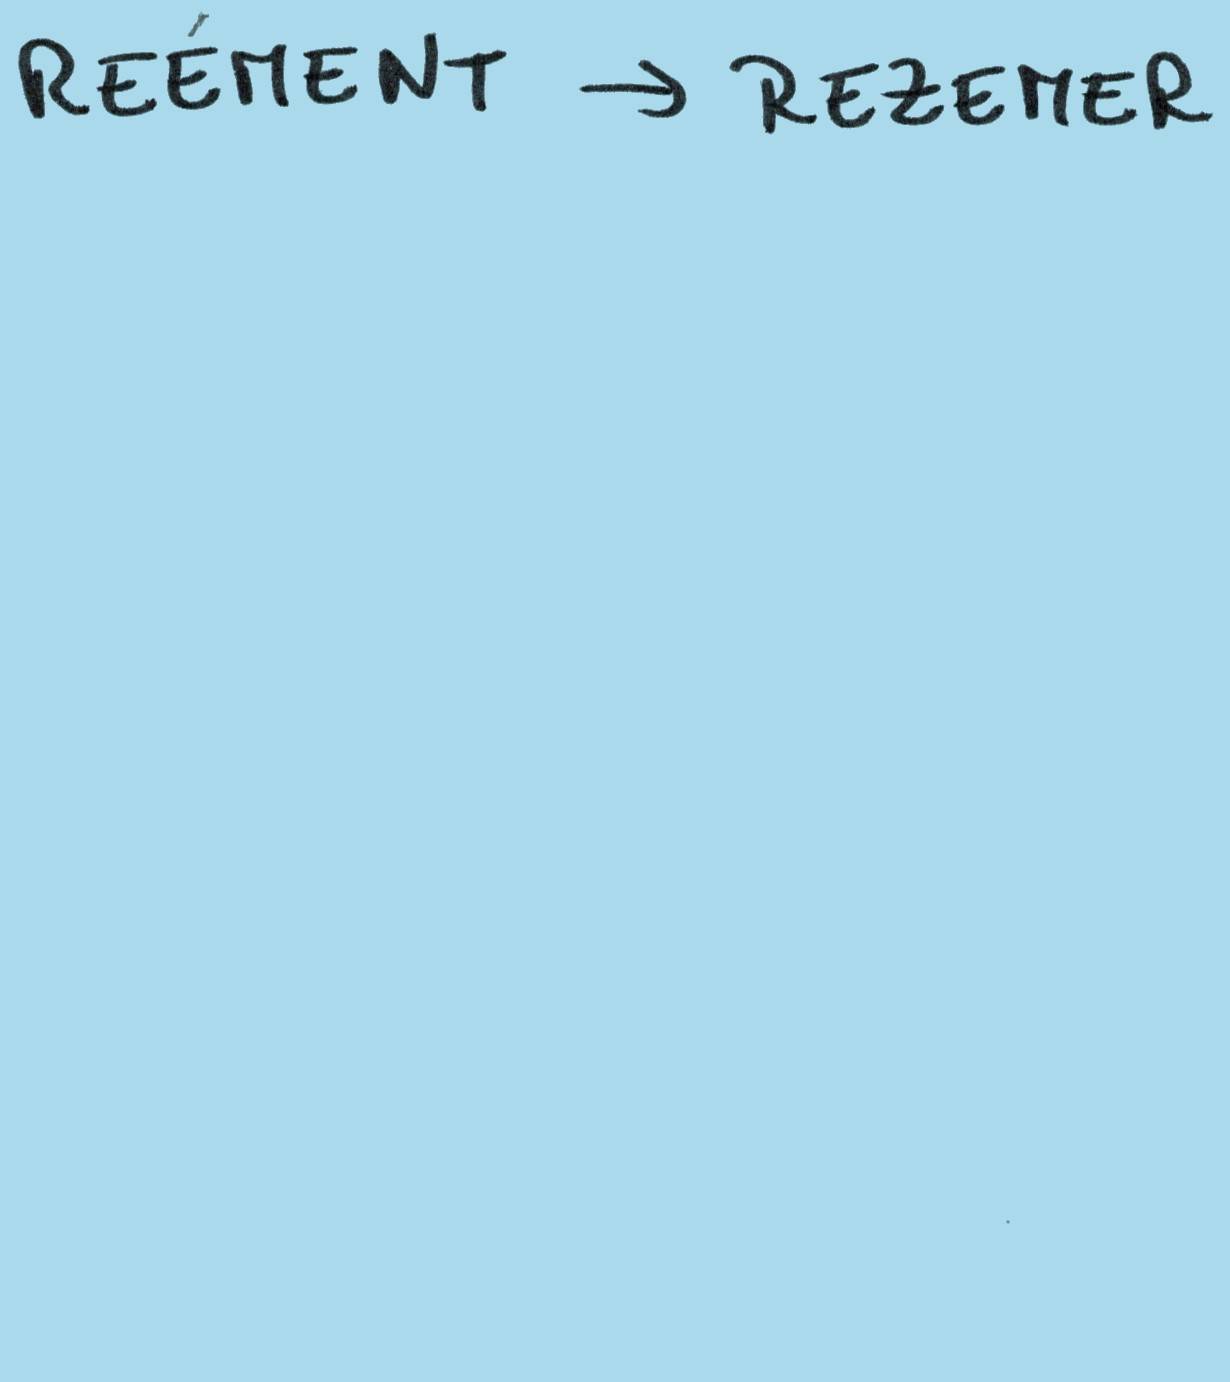 REÉMENT → REZEMER